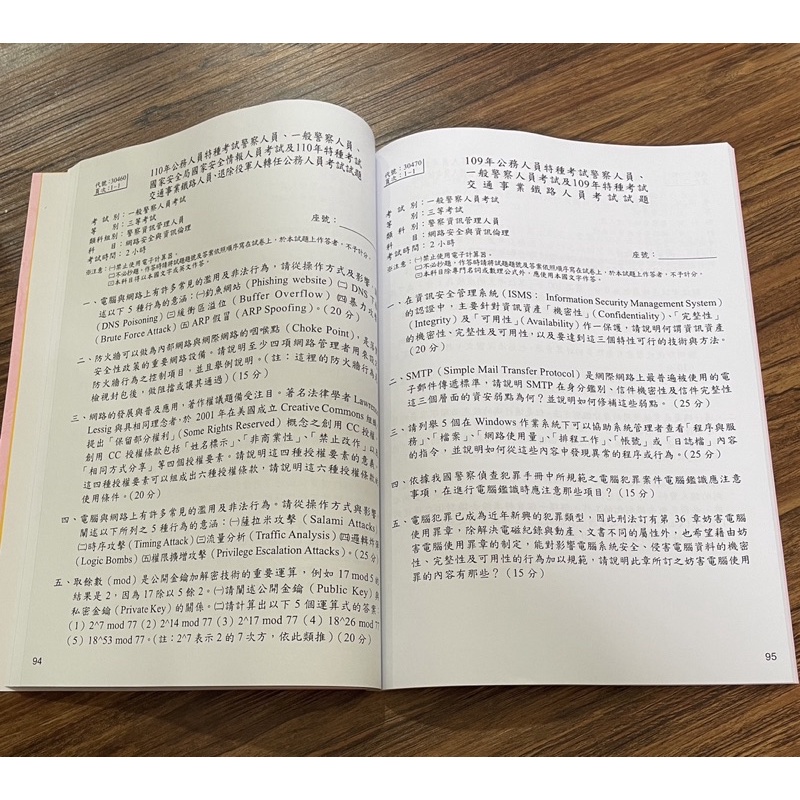 代號：30460
頁次：1－1
110年公務人員特種考試警察人員、一般警察人員、
國家安全局國家安全情報人員考試及110年特種考試
交通事業鐵路人員、退除役軍人轉任公務人員考試試題
考試別：一般警察人員考試
等別：三等考試
類科組別：警察資訊管理人員
科目：網路安全與資訊倫理
考試時間：2小時
座號：
※注意：㈠禁止使用電子計算器。
㈡不必抄題，作答時請將試題題號及答案依照順序寫在試卷上，於本試題上作答者，不予計分。
㈢本科目得以本國文字或英文作答。
一、電腦與網路上有許多常見的濫用及非法行為，請從操作方式及影響
述以下5種行為的意涵：㈠釣魚網站（Phishing website）㈡DNS
（DNS Poisoning）㈢緩衝區溢位（Buffer Overflow）㈣暴力
（Brute Force Attack）㈤ARP假冒（ARP Spoofing）。（20分）
二、防火牆可以做為內部網路與網際網路的咽喉點（Choke Point），是
安全性政策的重要網路設備。請說明至少四項網路管理者用來
防火牆行為之控制項目，並且舉例說明。（註：這裡的防火牆行為
檢視封包後，做阻擋或讓其通過）（15分）
三、網路的發展與普及應用，著作權議題備受注目。著名法律學者Lawrence
Lessig與具相同理念者，於2001年在美國成立Creative Commons組織
提出「保留部分權利」（Some Rights Reserved）概念之創用CC授權
創用CC授權條款包括「姓名標示」、「非商業性」、「禁止改作」以
「相同方式分享」等四個授權要素。請說明這四種授權要素的意義
這四種授權要素可以組成出六種授權條款，請說明這六種授權條款
使用條件。（20分）
四、電腦與網路上有許多常見的濫用及非法行為。請從操作方式與影響
闡述以下所列之5種行為的意涵：㈠薩拉米攻擊（Salami Attacks）
㈡時序攻擊（Timing Attack）㈢流量分析（Traffic Analysis）㈣邏輯炸
（Logic Bombs）㈤權限擴增攻擊（Privilege Escalation Attacks）。（25分
五、取餘數（mod）是公開金鑰加解密技術的重要運算，例如17 mod 5的
結果是2，因為17除以5餘2。㈠請闡述公開金鑰（Public Key）與
私密金鑰（Private Key）的關係。㈡請計算出以下5個運算式的答案
（1）2^7 mod 77（2）2^14 mod 77（3）2^17 mod 77（4）18^26 mod 77
（5）18^53 mod 77。（註：2^7表示2的7次方，依此類推）（20分）
94
代號：30470
頁次：1－1
109年公務人員特種考試警察人員、
一般警察人員考試及109年特種考試
交通事業鐵路人員考試試題
考試別：一般警察人員考試
等別：三等考試
類科組別：警察資訊管理人員
科目：網路安全與資訊倫理
考試時間：2小時
座號：
※注意：㈠禁止使用電子計算器。
㈡不必抄題，作答時請將試題題號及答案依照順序寫在試卷上，於本試題上作答者，不予計分。
㈢本科目除專門名詞或數理公式外，應使用本國文字作答。
一、在資訊安全管理系統（ISMS：Information Security Management System）
的認證中，主要針對資訊資產「機密性」（Confidentiality）、「完整性」
（Integrity）及「可用性」（Availability）作一保護，請說明何謂資訊資產
的機密性、完整性及可用性，以及要達到這三個特性可行的技術與方法。
（20分）
二、SMTP（Simple Mail Transfer Protocol）是網際網路上最普遍被使用的電
子郵件傳遞標準，請說明SMTP在身分鑑別、信件機密性及信件完整性
這三個層面的資安弱點為何？並說明如何修補這些弱點。（25分）
三、請列舉5個在Windows作業系統下可以協助系統管理者查看「程序與服
務」、「檔案」、「網路使用量」、「排程工作」、「帳號」或「日誌檔」內容
的指令，並說明如何從這些內容中發現異常的程序或行為。（25分）
四、依據我國警察偵查犯罪手冊中所規範之電腦犯罪案件電腦鑑識應注意
事項，在進行電腦鑑識時應注意那些項目？（15分）
五、電腦犯罪已成為近年新興的犯罪類型，因此刑法訂有第36章妨害電腦
使用罪章，除解決電磁紀錄與動產、文書不同的屬性外，也希望藉由妨
害電腦使用罪章的制定，能對影響電腦系統安全、侵害電腦資料的機密
性、完整性及可用性的行為加以規範，請說明此章所訂之妨害電腦使用
罪的內容有那些？（15分）
95